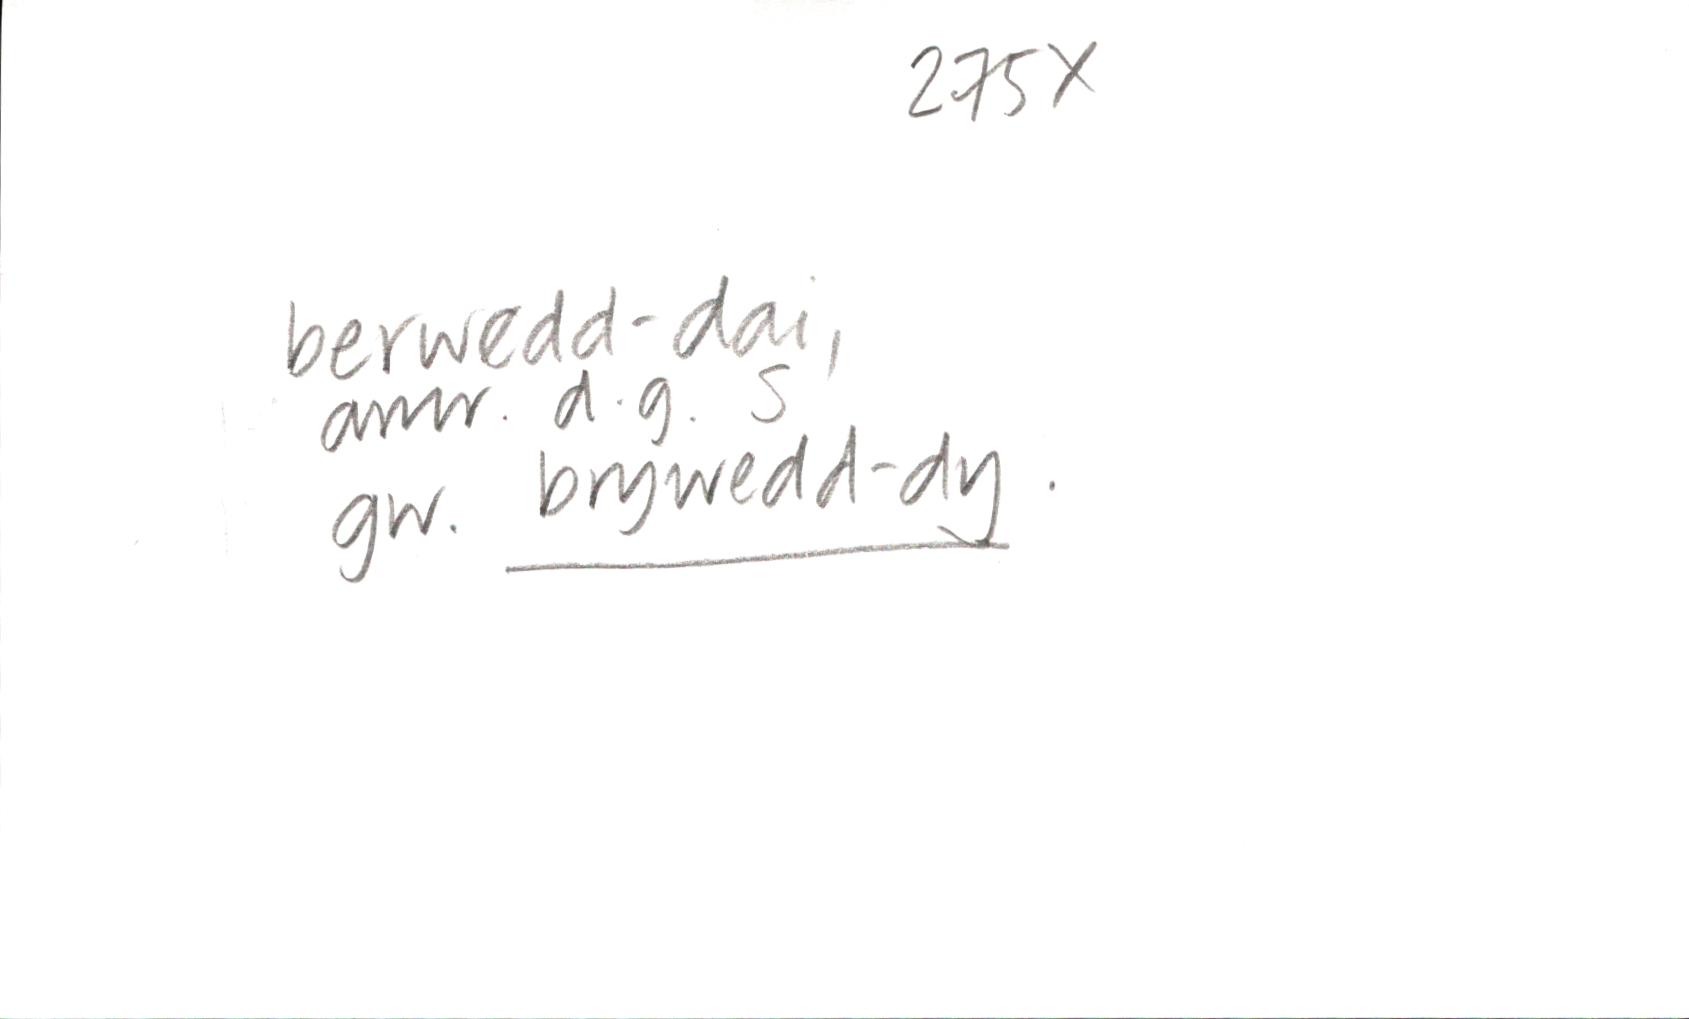 275X
berwedd-dai,
amr. d.g. s
gw. brywedd-dy.